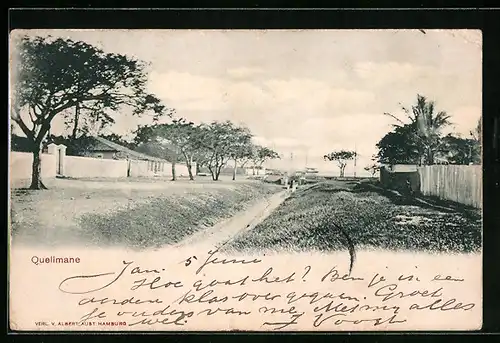 Quelimane
5 June
Jan. Hoe gaat het? Ben je in een
andere klas overgegaan. Groet
je ouders van me. Met mij alles
wel. J Voogt
VERL. V. ALBERT AUST HAMBURG